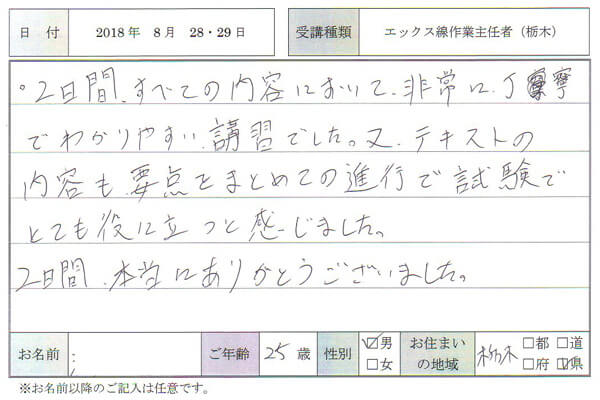 日 付 2018年 8月 28・29日 受講種類 エックス線作業主任者（栃木）
。2日間、すべての内容において、非常に、丁寧
でわかりやすい講習でした。又、テキストの
内容も要点をまとめての進行で試験で
とても役に立つと感じました。
2日間、本当にありがとうございました。
お名前 ご年齢 25歳 性別 ☑男 □女 お住まいの地域 栃木 □都 □道 □府 ☑県
※お名前以降のご記入は任意です。